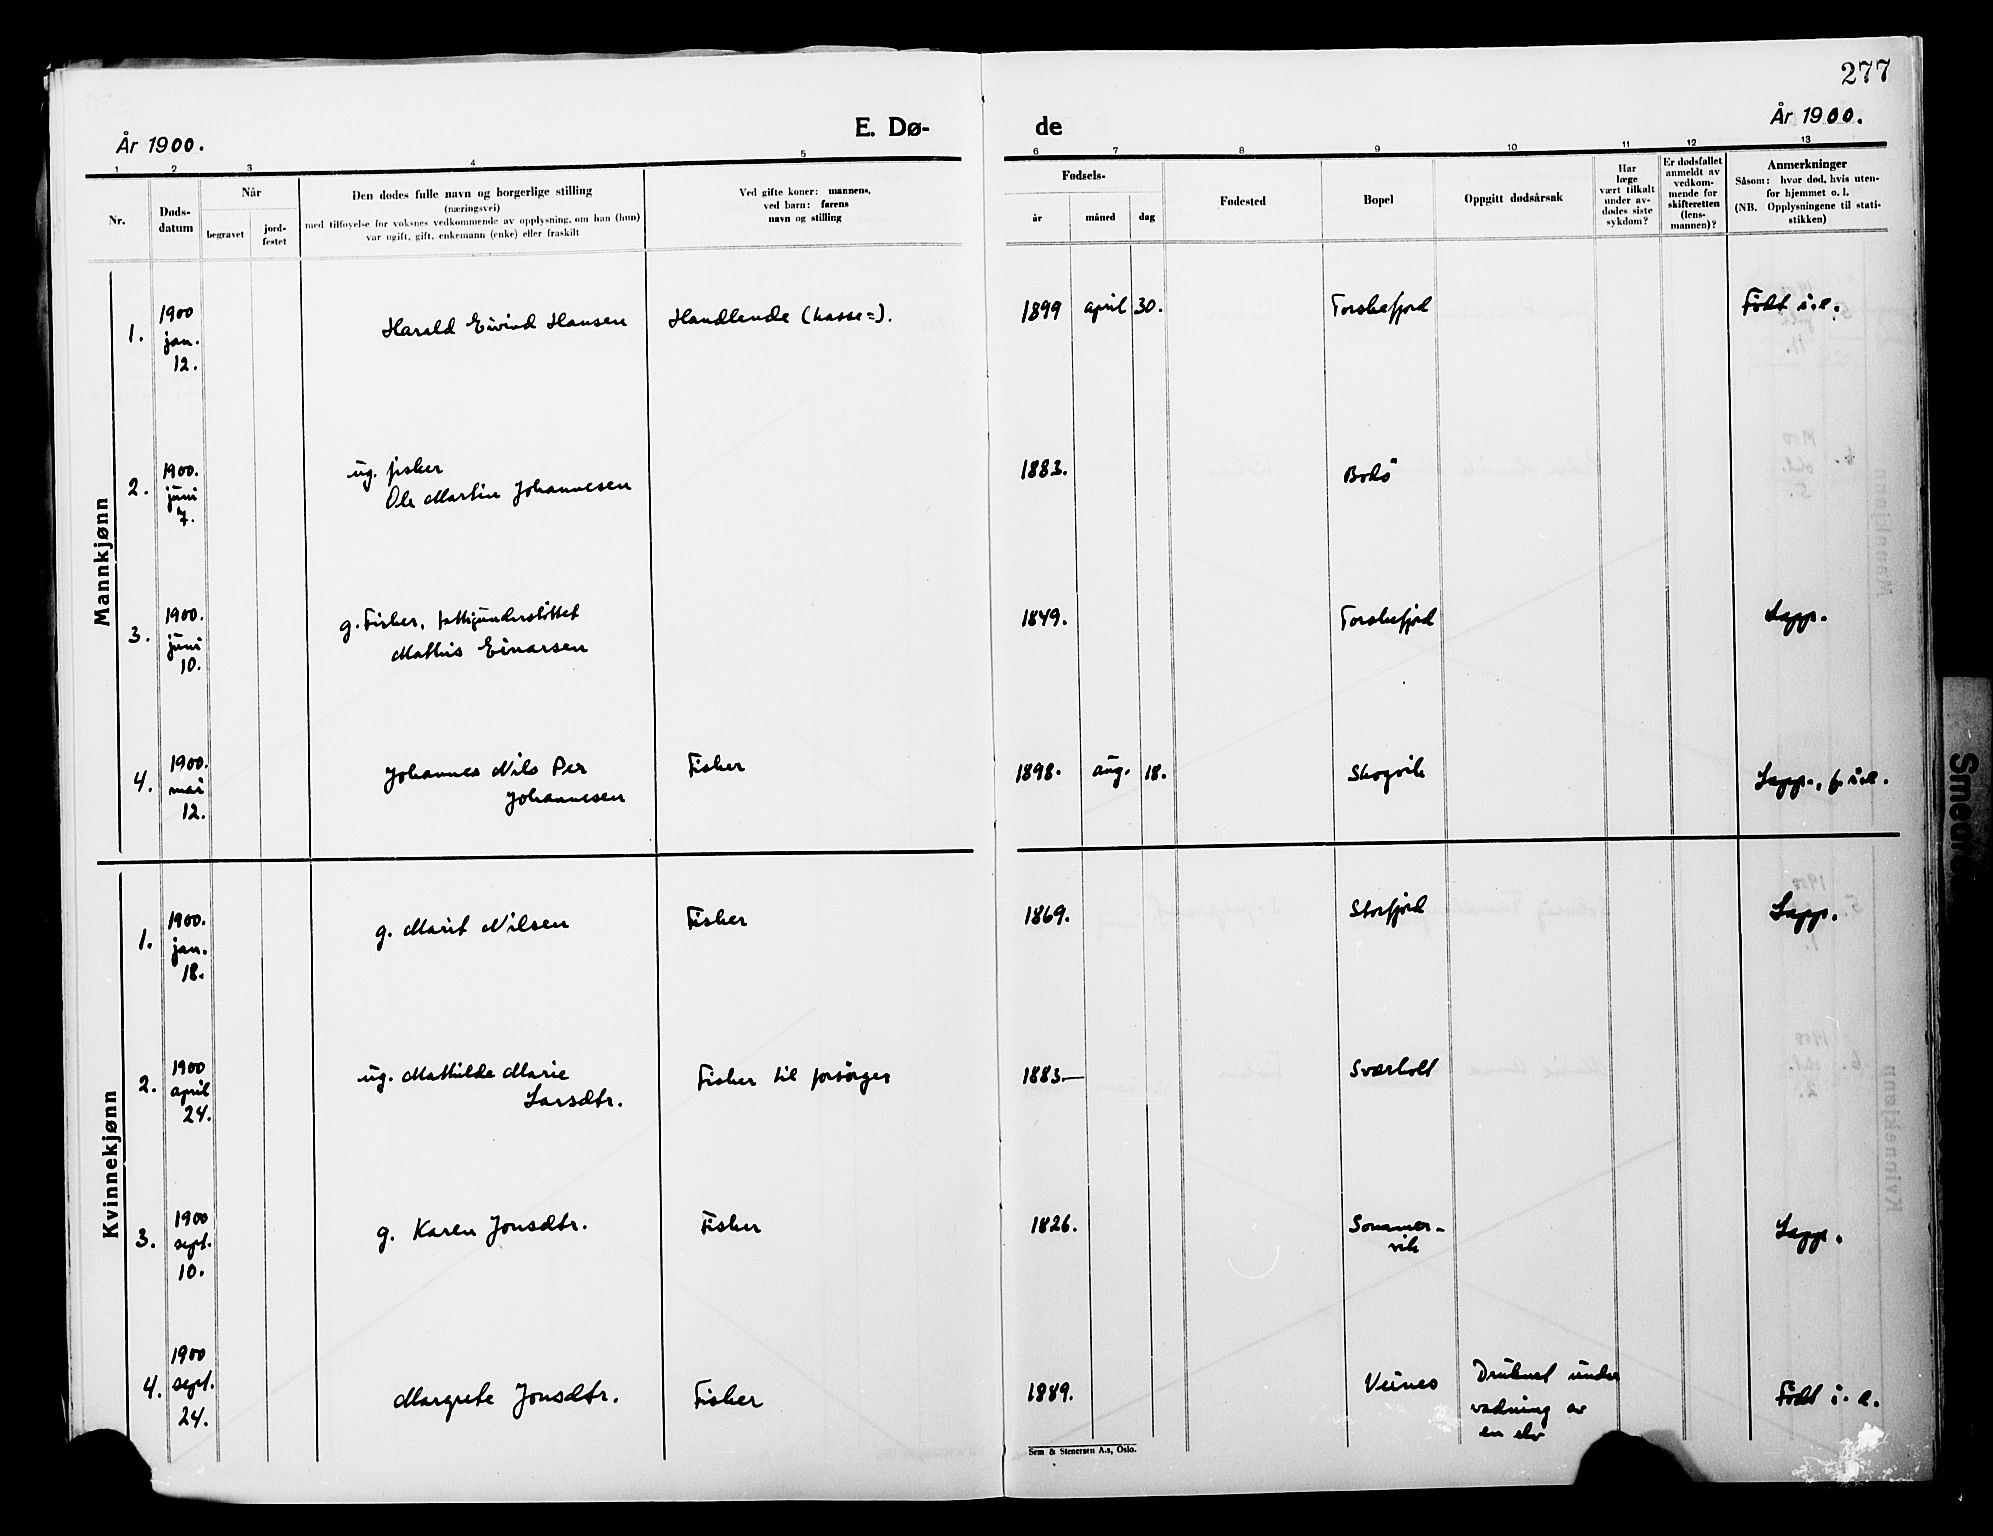 277
År 1900.
E. Dø-
de
År 1900.
1 2 3 4 5 6 7 8 9 10 11 12 13
Nr.
Døds-
datum
Når
begravet
jord-
festet
Den dødes fulle navn og borgerlige stilling
(næringsvei)
med tilføyelse for voksnes vedkommende av opplysning, om han (hun)
var ugift, gift, enkemann (enke) eller fraskilt
Ved gifte koner: mannens,
ved barn: farens
navn og stilling
Fødsels-
år
måned
dag
Fødested
Bopel
Oppgitt dødsårsak
Har
læge
vært tilkalt
under av-
dødes siste
sykdom?
Er dødsfallet
anmeldt av
vedkom-
mende for
skifteretten
(lens-
mannen)?
Anmerkninger
Såsom: hvor død, hvis uten-
for hjemmet o. l.
(NB. Opplysningene til stati-
stikken)
Mannkjønn
1.
1900
jan.
12.
Harald Eivind Hansen
Handlende
1899
april
30.
Torskefjord
Født i. e.
2.
1900.
juni
7.
ug. fisker
Ole Martin Johannesen
1883.
Bodö
3.
1900.
juni
10.
g. Fisker, fattigunderstöttet
Mathis Einarsen
1849.
Torskefjord
Lapp.
4.
1900.
mai
12.
Johannes Nils Per
Johannesen
Fisker
1898.
aug.
18.
Skogvik
Lapp., f. i. e.
Kvinnekjønn
1.
1900.
jan.
18.
g. Marit Nilsen
Fisker
1869.
Storfjord
Lapp.
2.
1900
april
24.
ug. Mathilde Marie
Larsdtr.
Fisker til forsörger
1883.—
Sværholt
3.
1900
sept.
10.
g. Karen Jonsdtr.
Fisker
1826.
Sommer-
vik
Lapp.
4.
1900
sept.
24.
Margrete Jonsdtr.
Fisker
1889.
Veines
Druknet under
vadning av
en elv
Født i. e.
Sem & Stenersen A.s, Oslo.